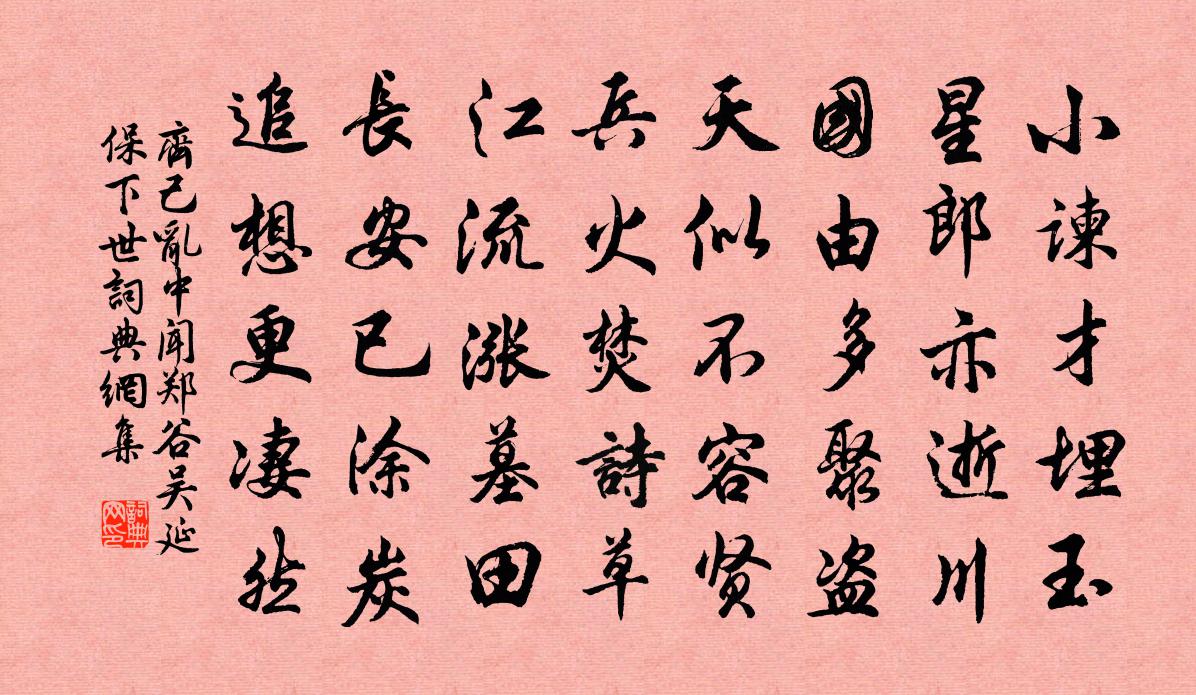 小諫才埋玉
星郎亦逝川
國由多聚盗
天似不容贤
兵火焚詩草
江流漲墓田
長安已涂炭
追想更凄然
齊己亂中闻郑谷吴延
保下世詞典網集
詞典
网印